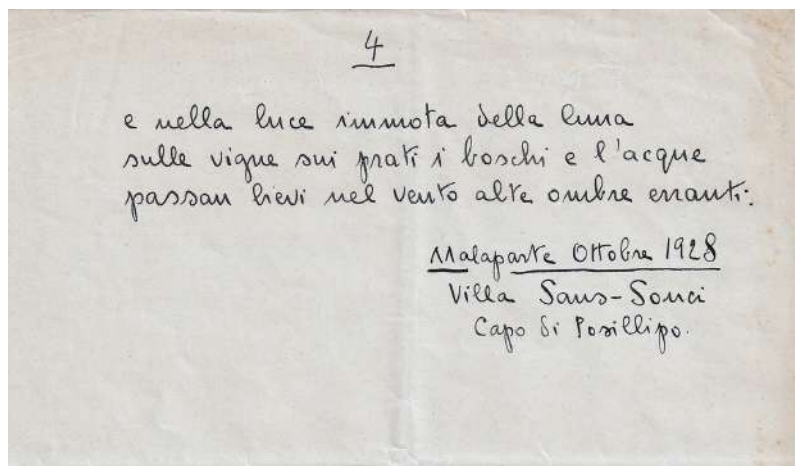 4
e nella luce immota della luna
sulle vigne sui prati i boschi e l'acque
passan lievi nel vento alte ombre erranti.
Malaparte Ottobre 1928
Villa Sans-Souci
Capo di Posillipo.